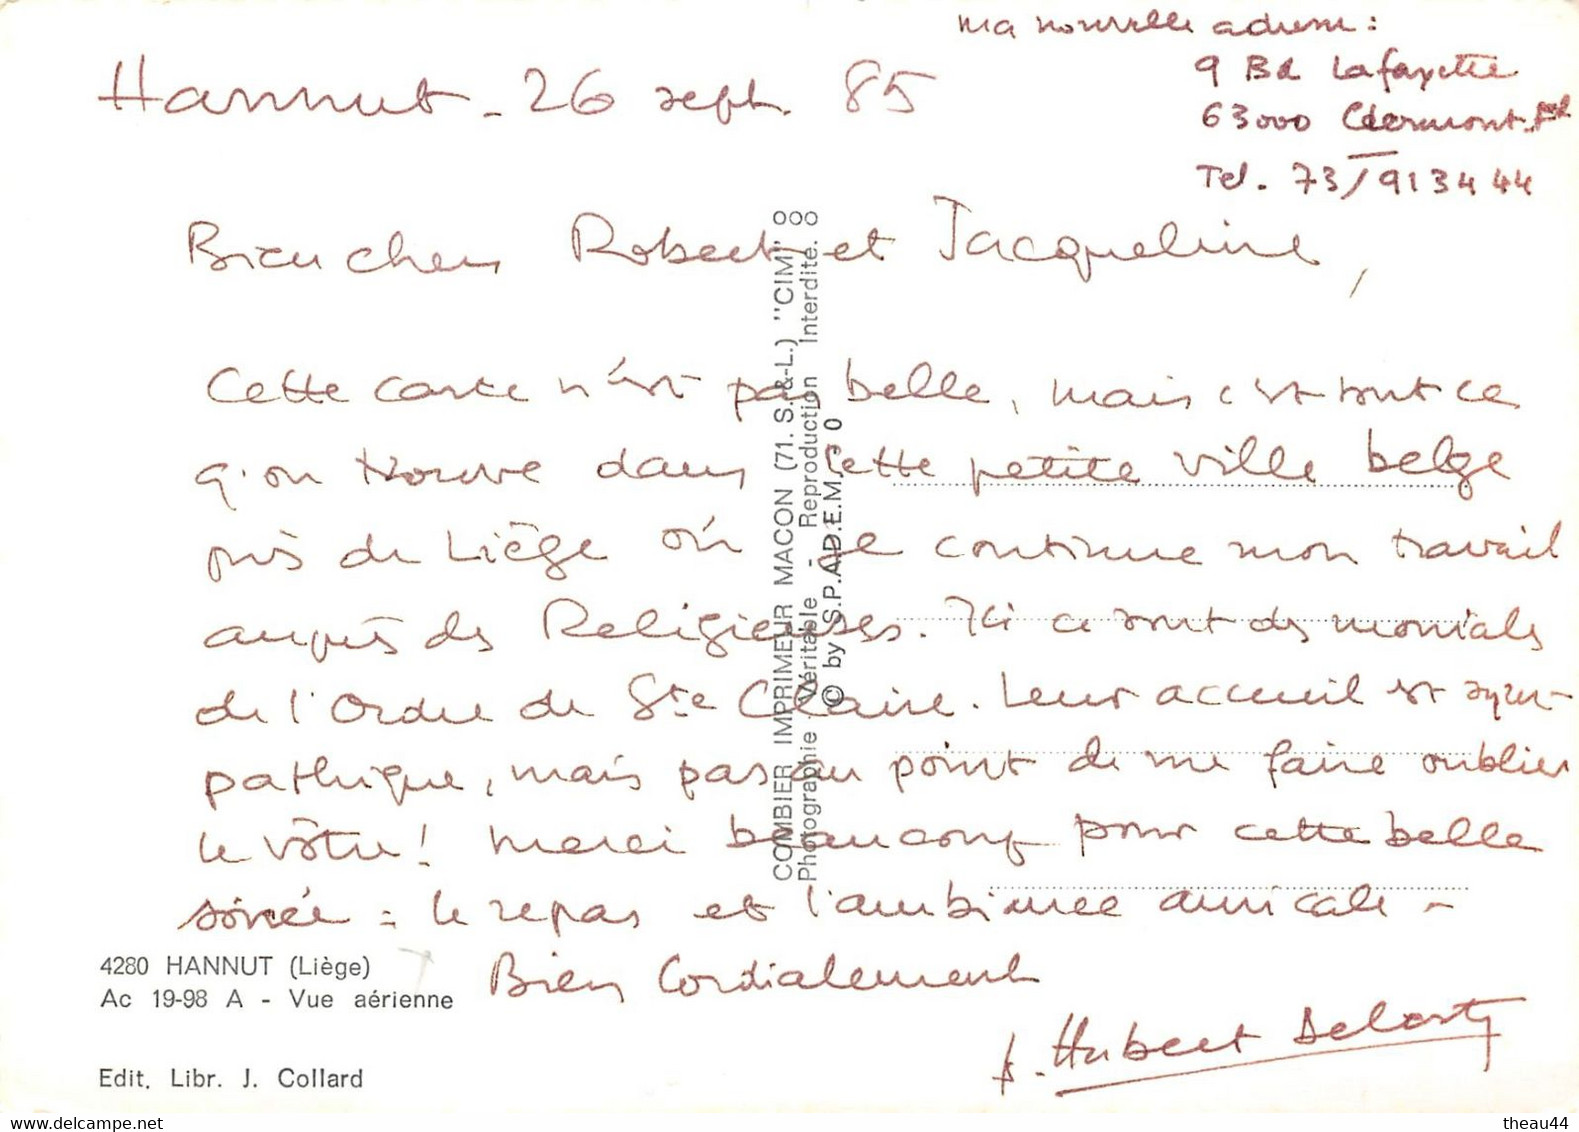 ma nouvelle adresse :
9 Bd Lafayette
63000 Clermont-Fd
Tel. 73/913444
Hannut - 26 sept. 85
Bien chers Robert et Jacqueline,
Cette carte n'est pas belle, mais c'est tout ce
q'on trouve dans cette petite ville belge
près de Liège où je continue mon travail
auprès des Religieuses. Ici ce sont des moniales
de l'Ordre de Ste Claire. Leur accueil est sym-
pathique, mais pas au point de me faire oublier
le vôtre ! Merci beaucoup pour cette belle
soirée : le repas et l'ambiance amicale -
Bien Cordialement
Hubert
COMBIER IMPRIMEUR MACON (71. S.-&-L.) "CIM"
Photographie Véritable - Reproduction Interdite.
© by S.P.A.D.E.M. 0
4280 HANNUT (Liège)
Ac 19-98 A - Vue aérienne
Edit. Libr. J. Collard
theau44